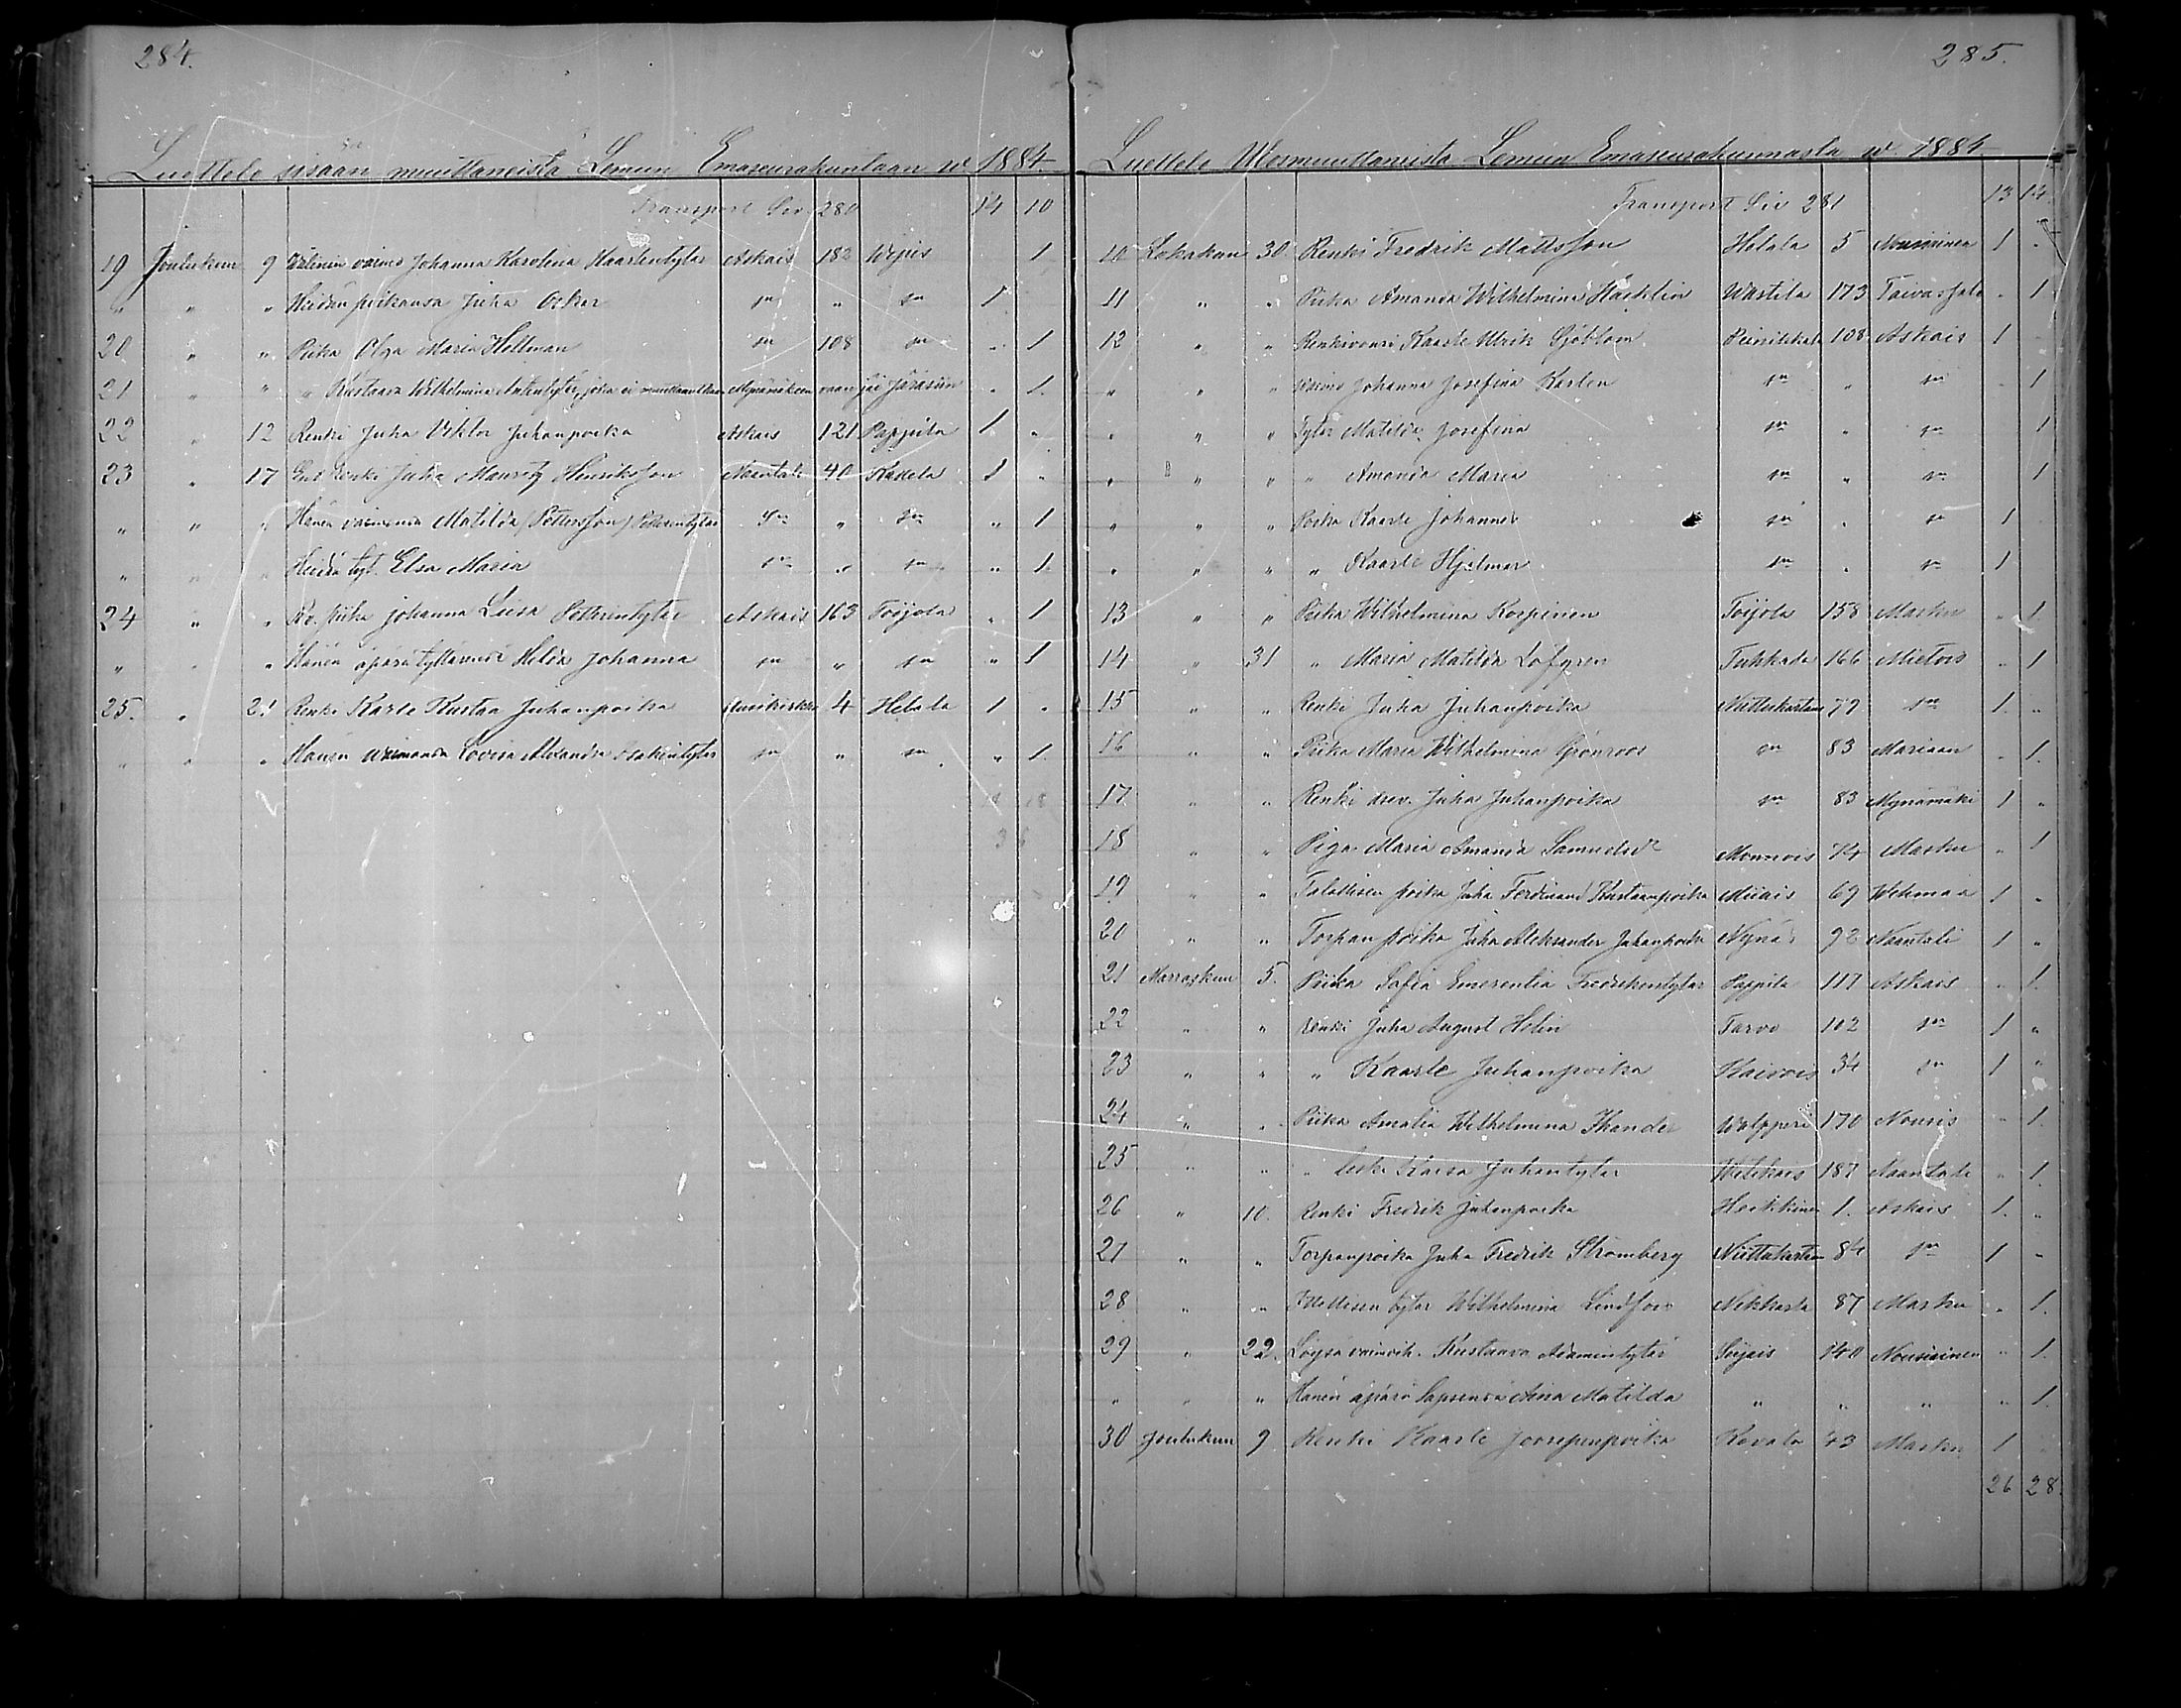 284.
Luettelo sisään muuttaneista Lemun Emäseurakuntaan w 1884.
Transport Siv 280 14 10
19 Joulukuu 9 vaimo Johanna Karolina Kaarlentytär Askais 182 Wepis 1
" " " Heidän poikansa Juha Oskar " 1
20 " " Piika Olga Maria Hellman 108 " 1
21 " " " Kustaava Wilhelmina Antintytär, joka ei Mynämäkeen vaan jäi " 1.
22 " 12 Renki Juha Viktor Juhanpoika Askais 121 Pappila 1 "
23 " 17 Ent Renki Juha Mauritz Henriksson Naantali 40 Kaxela 1 "
" " " Hänen vaimonsa Matilda (Pettersson) Petterintytär " " 1
" " " Heidän tyt. Elsa Maria " " 1.
24 " " piika Johanna Liisa Petterintytär Askais 163 Toijola " 1
" " " Hänen äpärä tyttärensä Hilda Johanna " " 1
25. " 21 Renki Karle Kustaa Juhanpoika Uusikirkko 4 Helala 1 "
" " " Hänen waimonsa Lovisa Alexandra " " 1.
18
36
285.
Luettelo Ulosmuuttaneista Lemun Emäseurakunnasta w. 1884
Transport Siv 281 13 14.
10 Lokakuu 30. Renki Fredrik Mattsson Helala 5 Nousiainen 1 "
11 " " Piika Amanda Wilhelmina Wastila 173 Taivassalo " 1
12 " " Renkivouri Kaarle Ulrik Sjöblom 108 Askais 1
" " " vaimo Johanna Josefina " 1
" " " Tytär Matilda Josefina " 1
" " " " Amanda Maria " 1
" " " Poika Kaarle Johannes " 1
" " " " Kaarle Hjalmar " 1
13 " " Piika Wilhelmina Kospinen Toijola 158 Masku " 1
14 " 31 " Maria Matilda Löfgren Tuhkala 166 Mietois " 1
15 " " Renki Juha Juhanpoika Niittukartano 79 1. "
16 " " Piika Maria Wilhelmina Grönroos 83 Mariaan " 1.
17 " " Renki Juha Juhanpoika 83 Mynämäki 1 "
18 " " Piga Maria Amanda Samuelsdr Monnois 74 Masku " 1
19 " " Talollisen poika Juha Ferdinand Kustaanpoika Miiais 69 Wehmaa 1 "
20 " " Torpan poika Juha Aleksander Juhanpoika Nynä 92 Naantali 1 "
21 Marraskuu 5. Piika Sofia Emerentia Fredrikintytär Pappila 117 Askais " 1.
22 " " Renki Juha August Helin Tarvo 102 1 "
23 " " " Kaarle Juhanpoika Kaivois 34 1 "
24 " " Piika Amalia Wilhelmina Ikander Walpperi 170 Nousis " 1.
25 " " " leski Kaisa Juhantytär 187 Naantali " 1.
26 " 10. Renki Fredrik Juhanpoika Heikkinen 1. Askais 1. "
27 " " Torpanpoika Juha Fredrik Strömberg Niittukartano 84 1 "
28 " " Itellisen tytär Wilhelmina Lindfors Nikkasla 87 Masku " 1.
29 " 22. Kustaava Adamintytär Seijais 140 Nousiainen " 1.
" " " Hänen äpärä lapsensa Aina Matilda " " " " 1.
30 Joulukuu 9 Renki Kaarle Joosepinpoika Kavala 43 Masku 1
26 28.